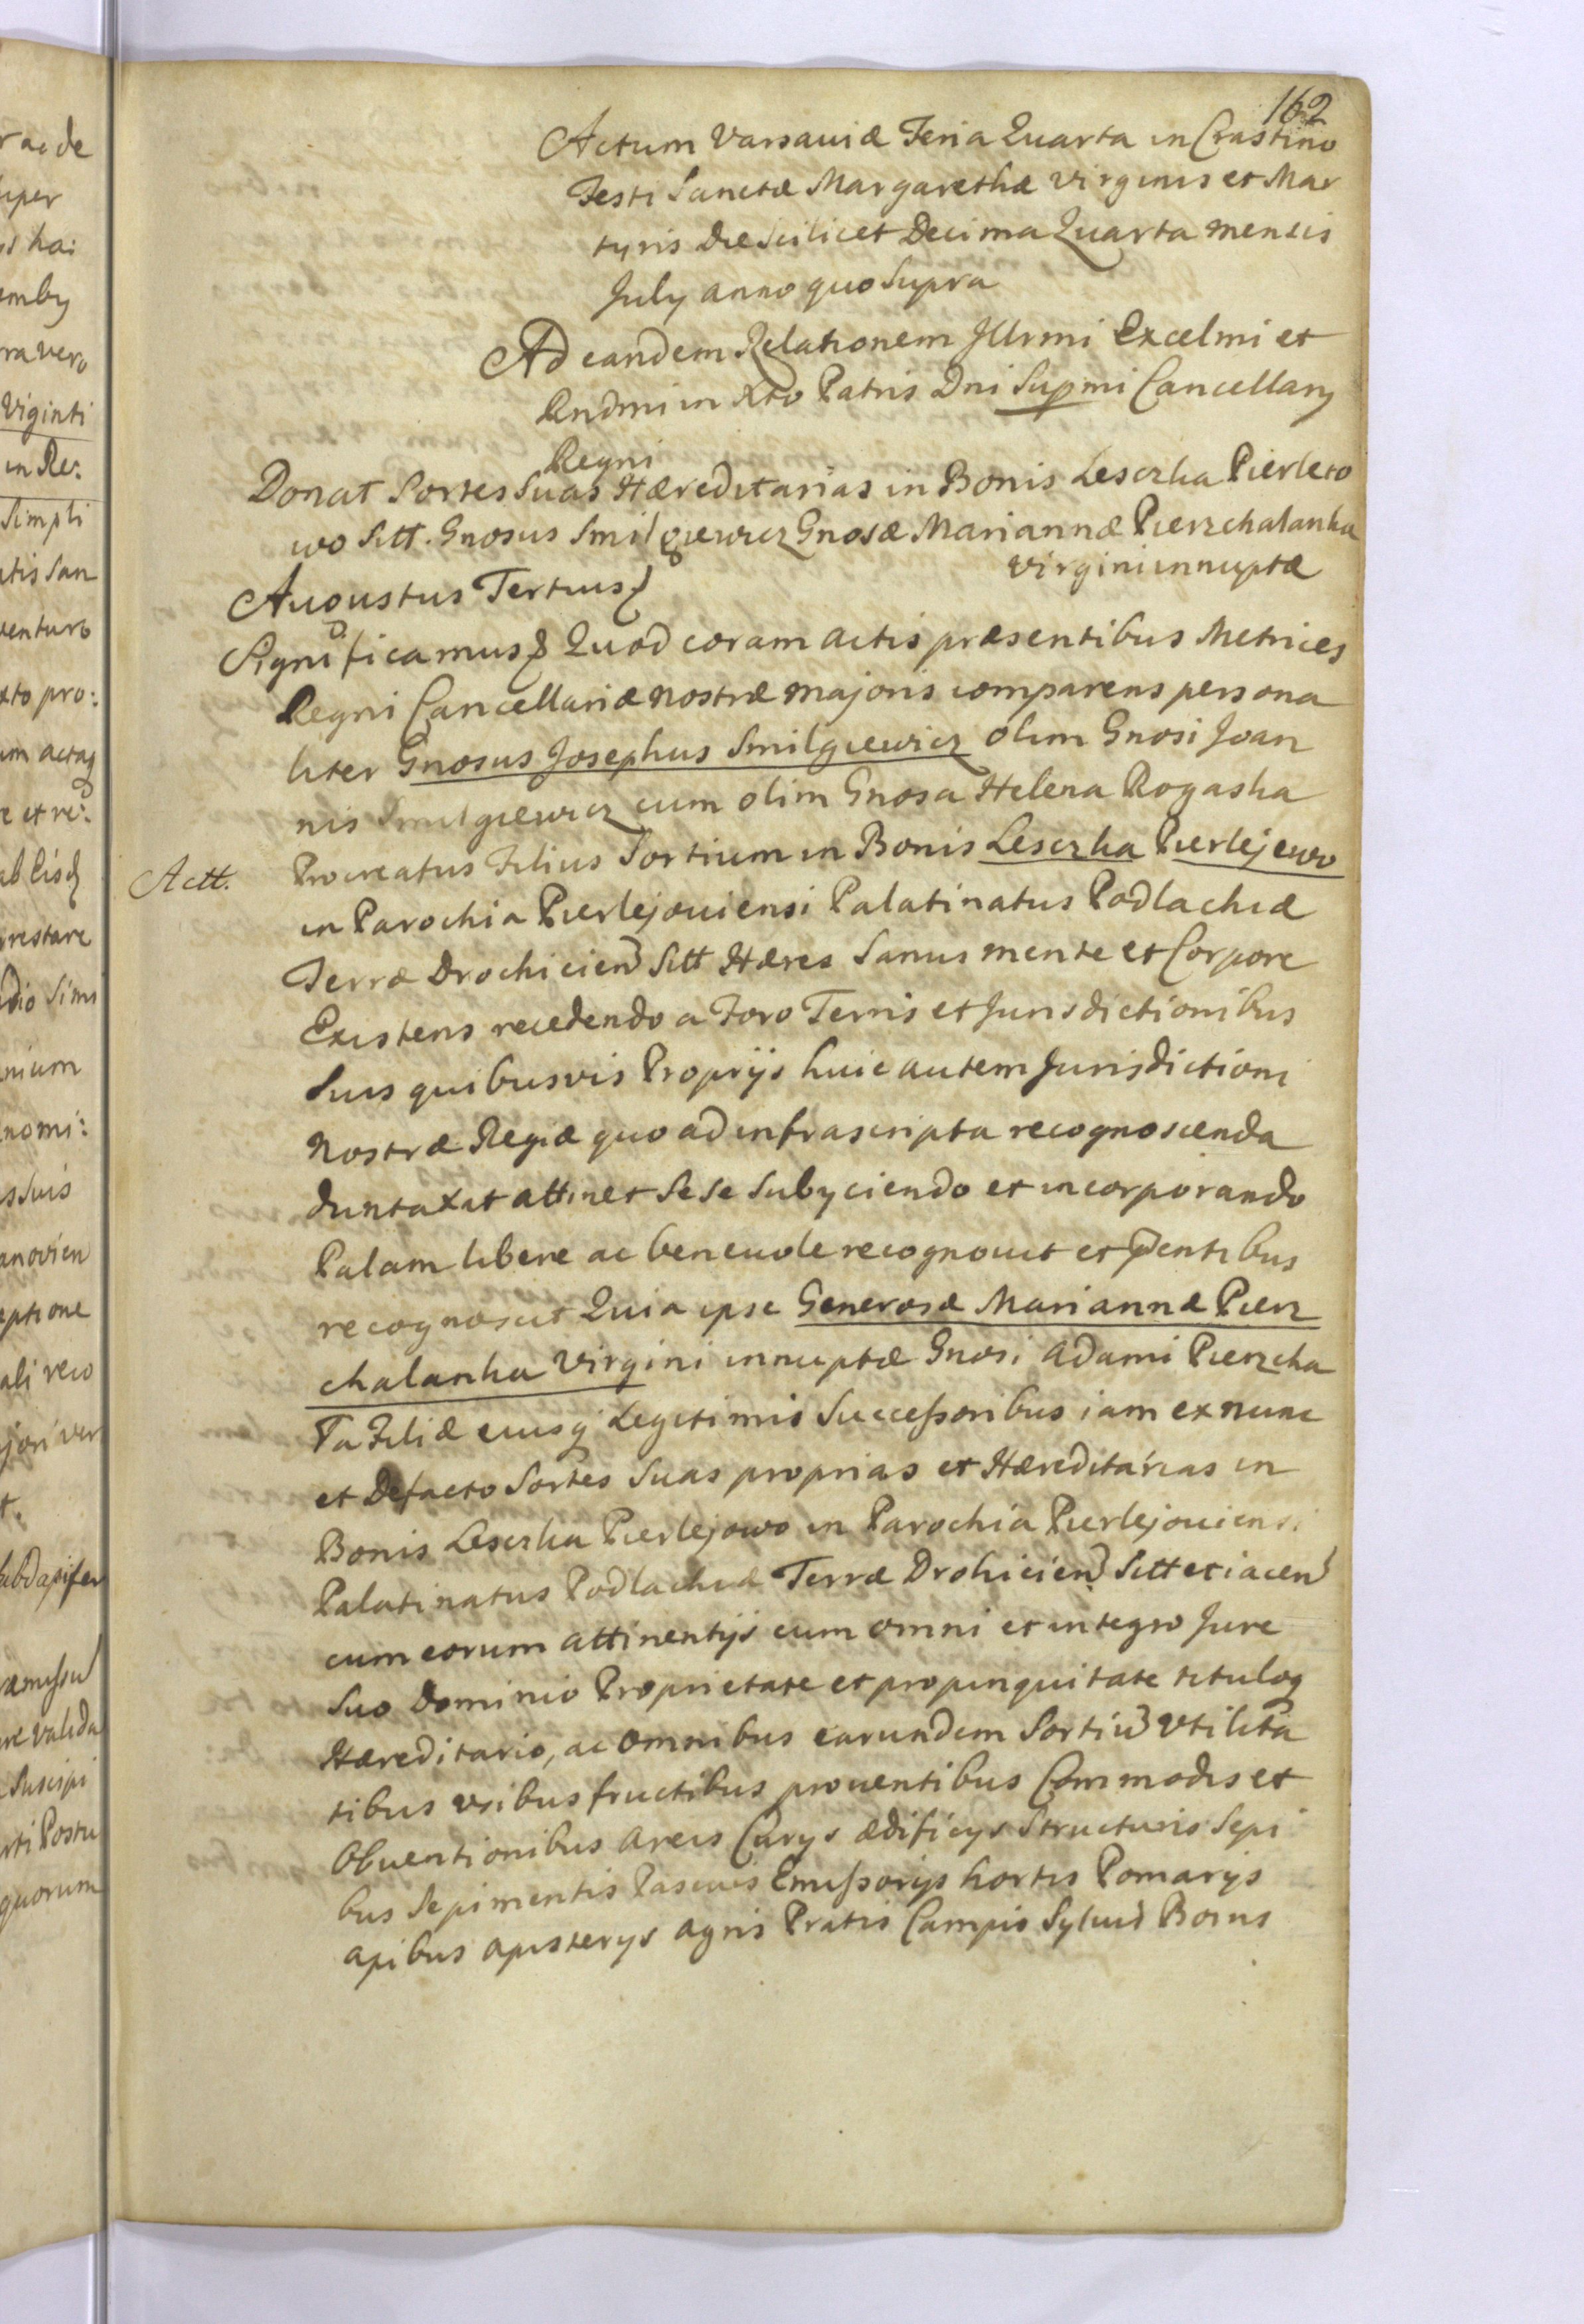 162
Actum Varsaviæ Feria Quarta in Crastino
Festi Sanctæ Margarethæ Virginis et Mar
tyris die Scilicet Decima Quarta mensis
July anno quo Supra
Ad eandem Relationem Illrmi Excelmi et
Rndmi in Xto Patris Dni Supmi Cancellary
Regni
Donat Sortes Suas Hæreditarias in Bonis Leszka Pierleio
wo sitt. Gnosus Smilgiewicz Gnosæ Mariannæ Pierzchalanka
Virgini innuptæ
Augustus Tertius
Significamus Quod coram actis præsentibus Metrices
Regni Cancellariæ nostræ majoris comparens persona
liter Gnosus Josephus Smilgiewicz olim Gnosi Joan
nis Smilgiewicz cum olim Gnosa Helena Rogaska
Actt.
Procreatus Filius Sortium in Bonis Leszka Pierlejewo
in Parochia Pierlejoviensi Palatinatus Podlachiæ
Terræ Drochicien Sitt Hæres Sanus mente et Corpore
Existens recedendo a Foro Terris et Jurisdictionibus
Suis quibusvis Proprijs huic autem Jurisdictioni
Nostræ Regiæ quo ad infrascripta recognoscenda
duntaxat attinet Sese Subyciendo et incorporando
Palam libere ac benevole recognovit et pentibus
recognoscit Quia ipse Generosæ Mariannæ Pierz
chalanka Virgini innuptæ Gnosi Adami Pierzcha
ła Filiæ eiusq Legitimis Successoribus iam ex nunc
et Defacto Sortes Suas proprias et Hæreditarias in
Bonis Leszka Pierlejowo in Parochia Pierlejoviensi
Palatinatus Podlachiæ Terræ Drohicien Sitt et iacen
cum eorum attinentijs cum omni et integro Jure
Suo Dominio Proprietate et propinquitate tituloq
Hæreditario, ac omnibus earundem Sortiu Vtilita
tibus vsibus fructibus proventibus Commodis et
Obventionibus areis Curys ædificys Structuris Sepi
bus Sepimentis Pascuis Emissorijs hortis Pomarijs
apibus apisterys agris Pratis Campis Sylvis Boris